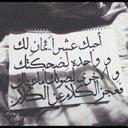 أحبك عشراً ثمان لك
و واحده لضحكتك
و الأخرى لصوتك
فعجز الكلام عن الكلام